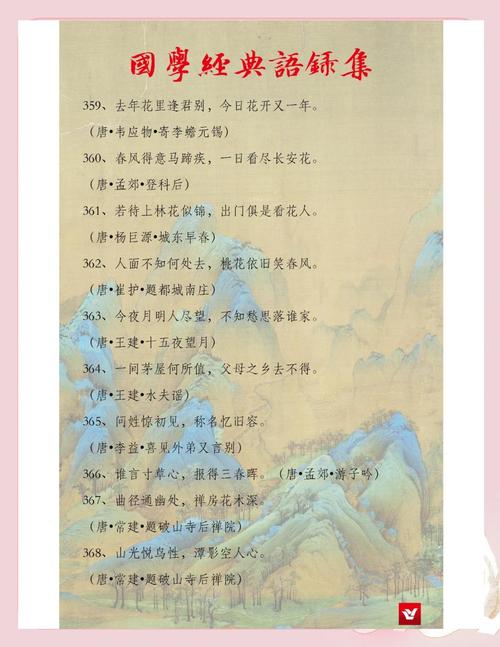 國學經典語録集
359、去年花里逢君别，今日花开又一年。
（唐•韦应物•寄李儋元锡）
360、春风得意马蹄疾，一日看尽长安花。
（唐•孟郊•登科后）
361、若待上林花似锦，出门俱是看花人。
（唐•杨巨源•城东早春）
362、人面不知何处去，桃花依旧笑春风。
（唐•崔护•题都城南庄）
363、今夜月明人尽望，不知愁思落谁家。
（唐•王建•十五夜望月）
364、一间茅屋何所值，父母之乡去不得。
（唐•王建•水夫谣）
365、问姓惊初见，称名忆旧容。
（唐•李益•喜见外弟又言别）
366、谁言寸草心，报得三春晖。（唐•孟郊•游子吟）
367、曲径通幽处，禅房花木深。
（唐•常建•题破山寺后禅院）
368、山光悦鸟性，潭影空人心。
（唐•常建•题破山寺后禅院）